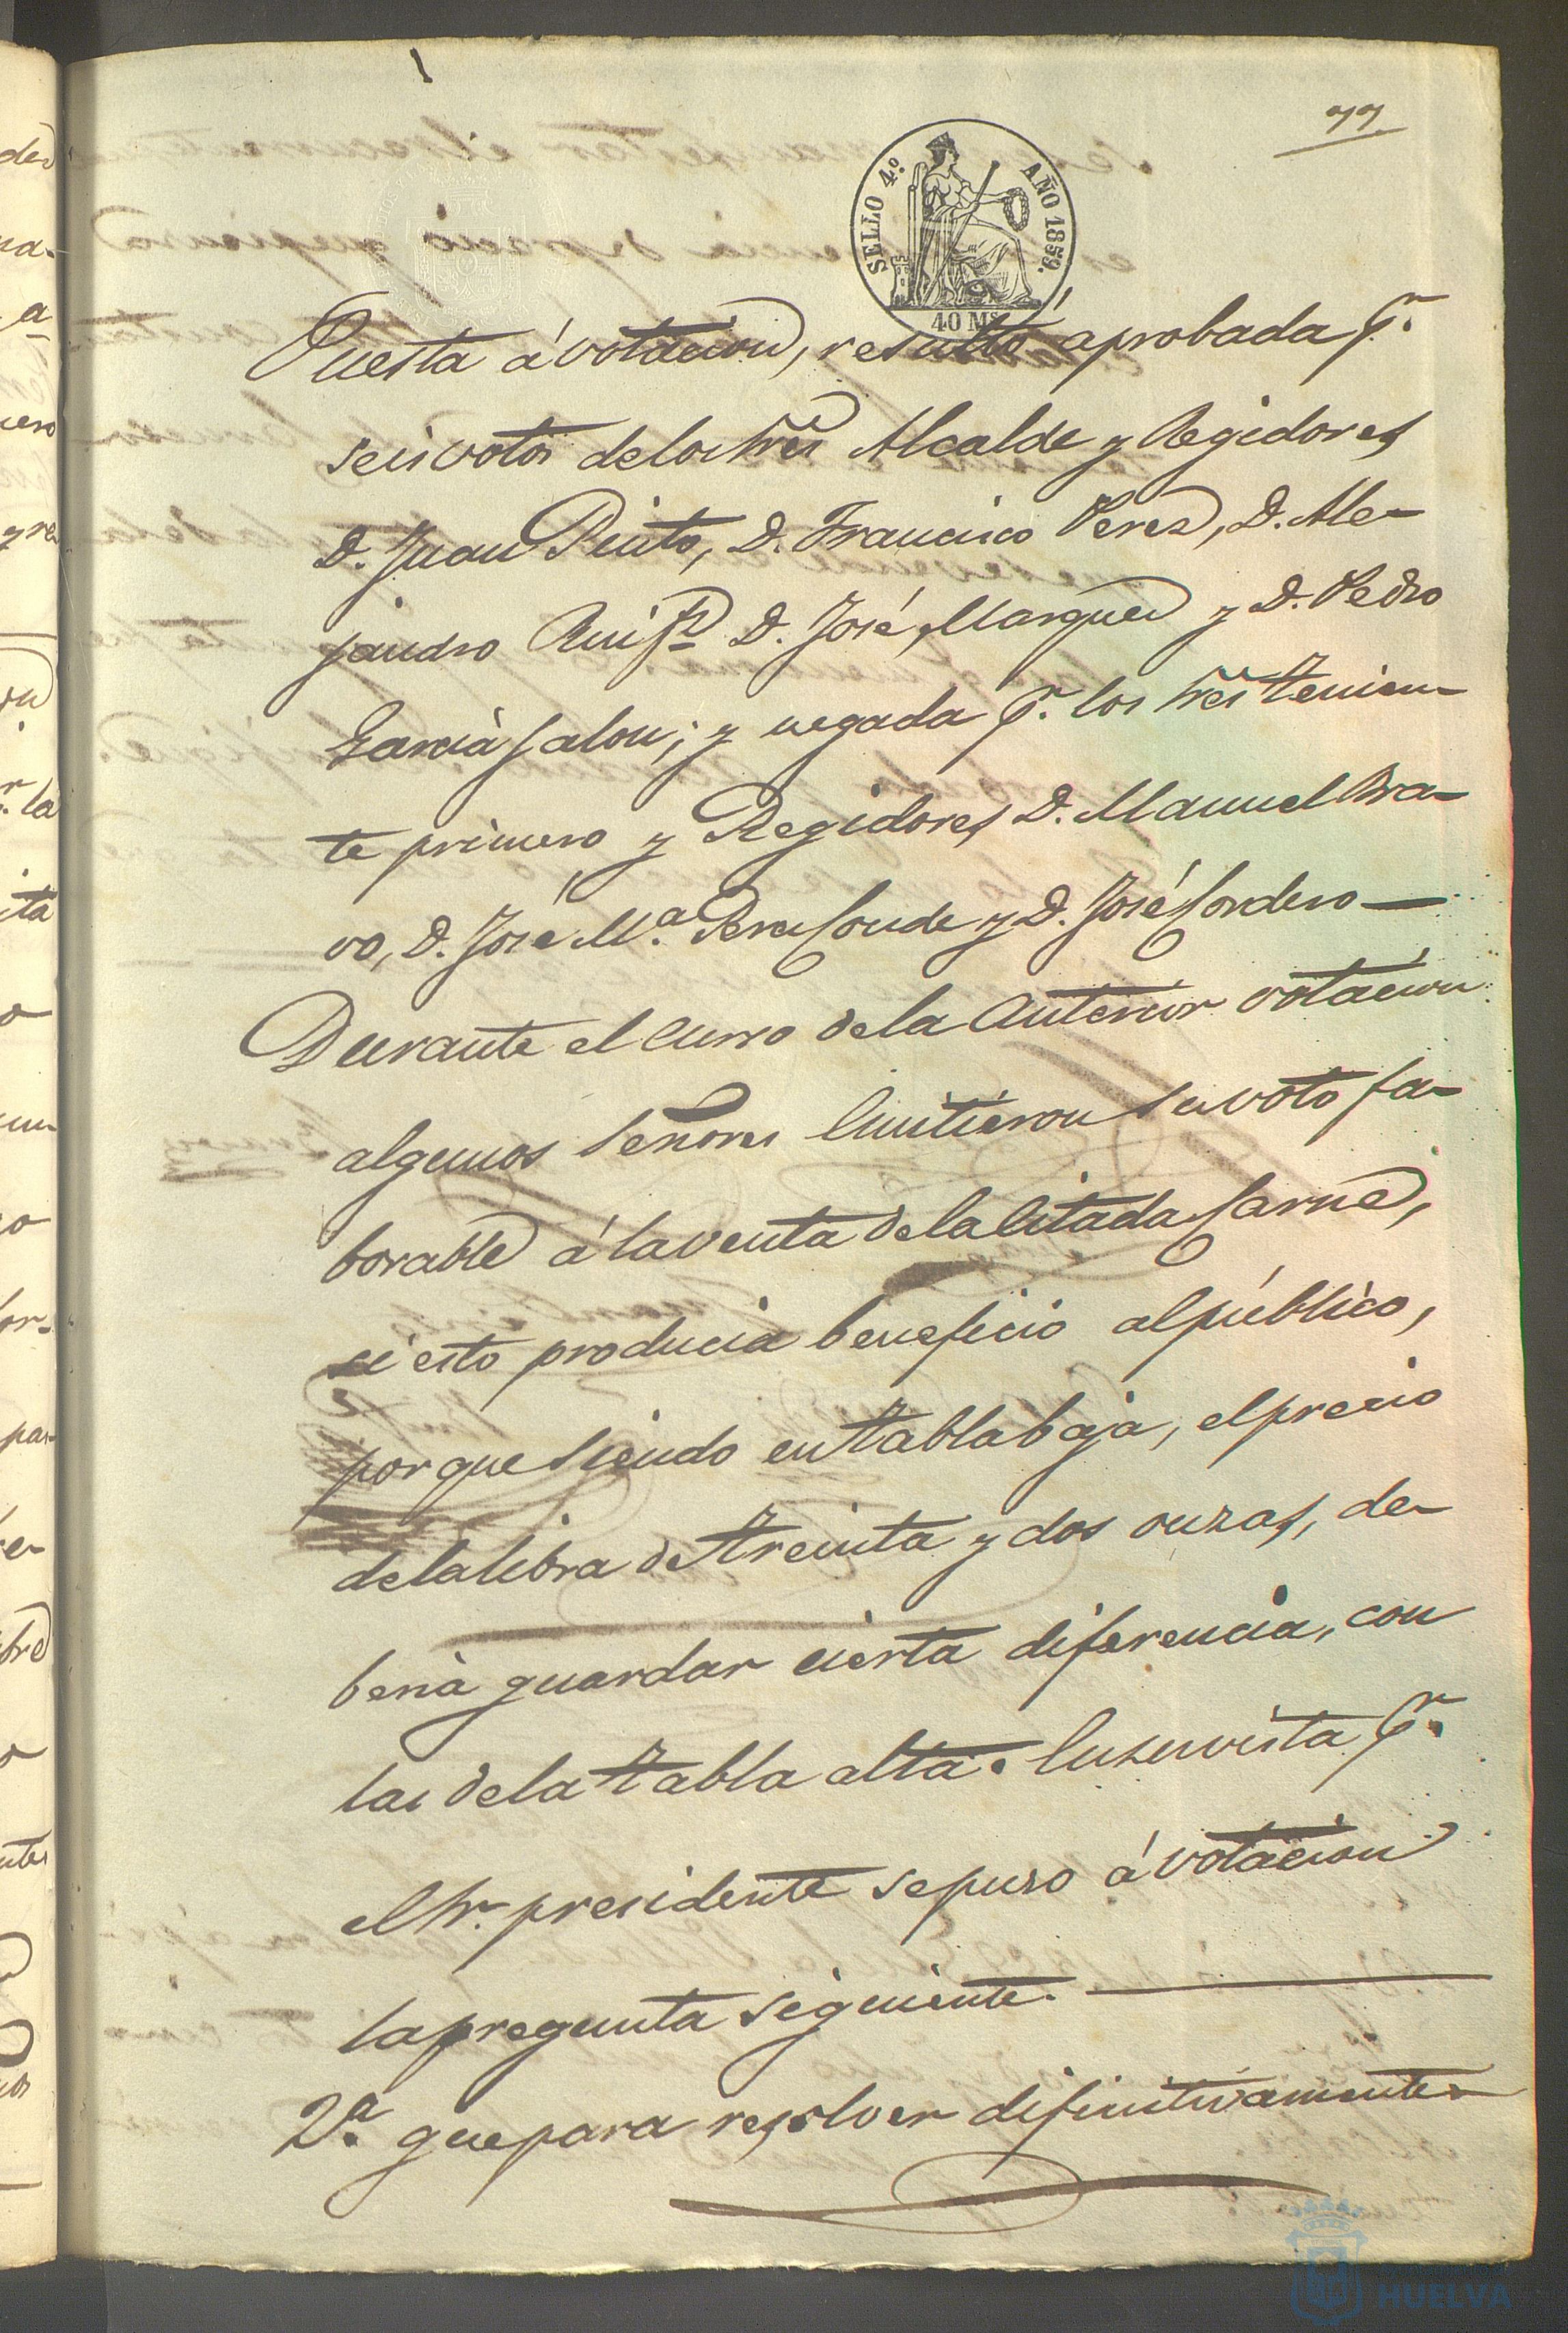 77
SELLO 4º AÑO 1859.
40 Ms
Puesta á votacion, resultó aprobada pr.
seis votos de los Sres Alcalde y Regidores
D. Juan Pinto, D. Francisco Perez, D. Ale-
jandro D. José Marquez y D. Pedro
Garcia Jalon; y negada pr. los Sres Tenien-
te primero y Regidores D. Manuel Bra-
vo, D. José Ma. Perez Conde y D. José Cordero —
Durante el curso de la anterior votacion
algunos Señores emitieron su voto fa-
borable á la venta de la citada Carne,
si esto producia beneficio al público,
por que siendo en tabla baja, el precio
de la libra de treinta y dos onzas, de-
beria guardar cierta diferencia, con
las de la tabla alta. En su vista pr.
el Sr. presidente se puso á votacion
la pregunta siguiente. —
2ª. que para resolver difinitivamente
HUELVA